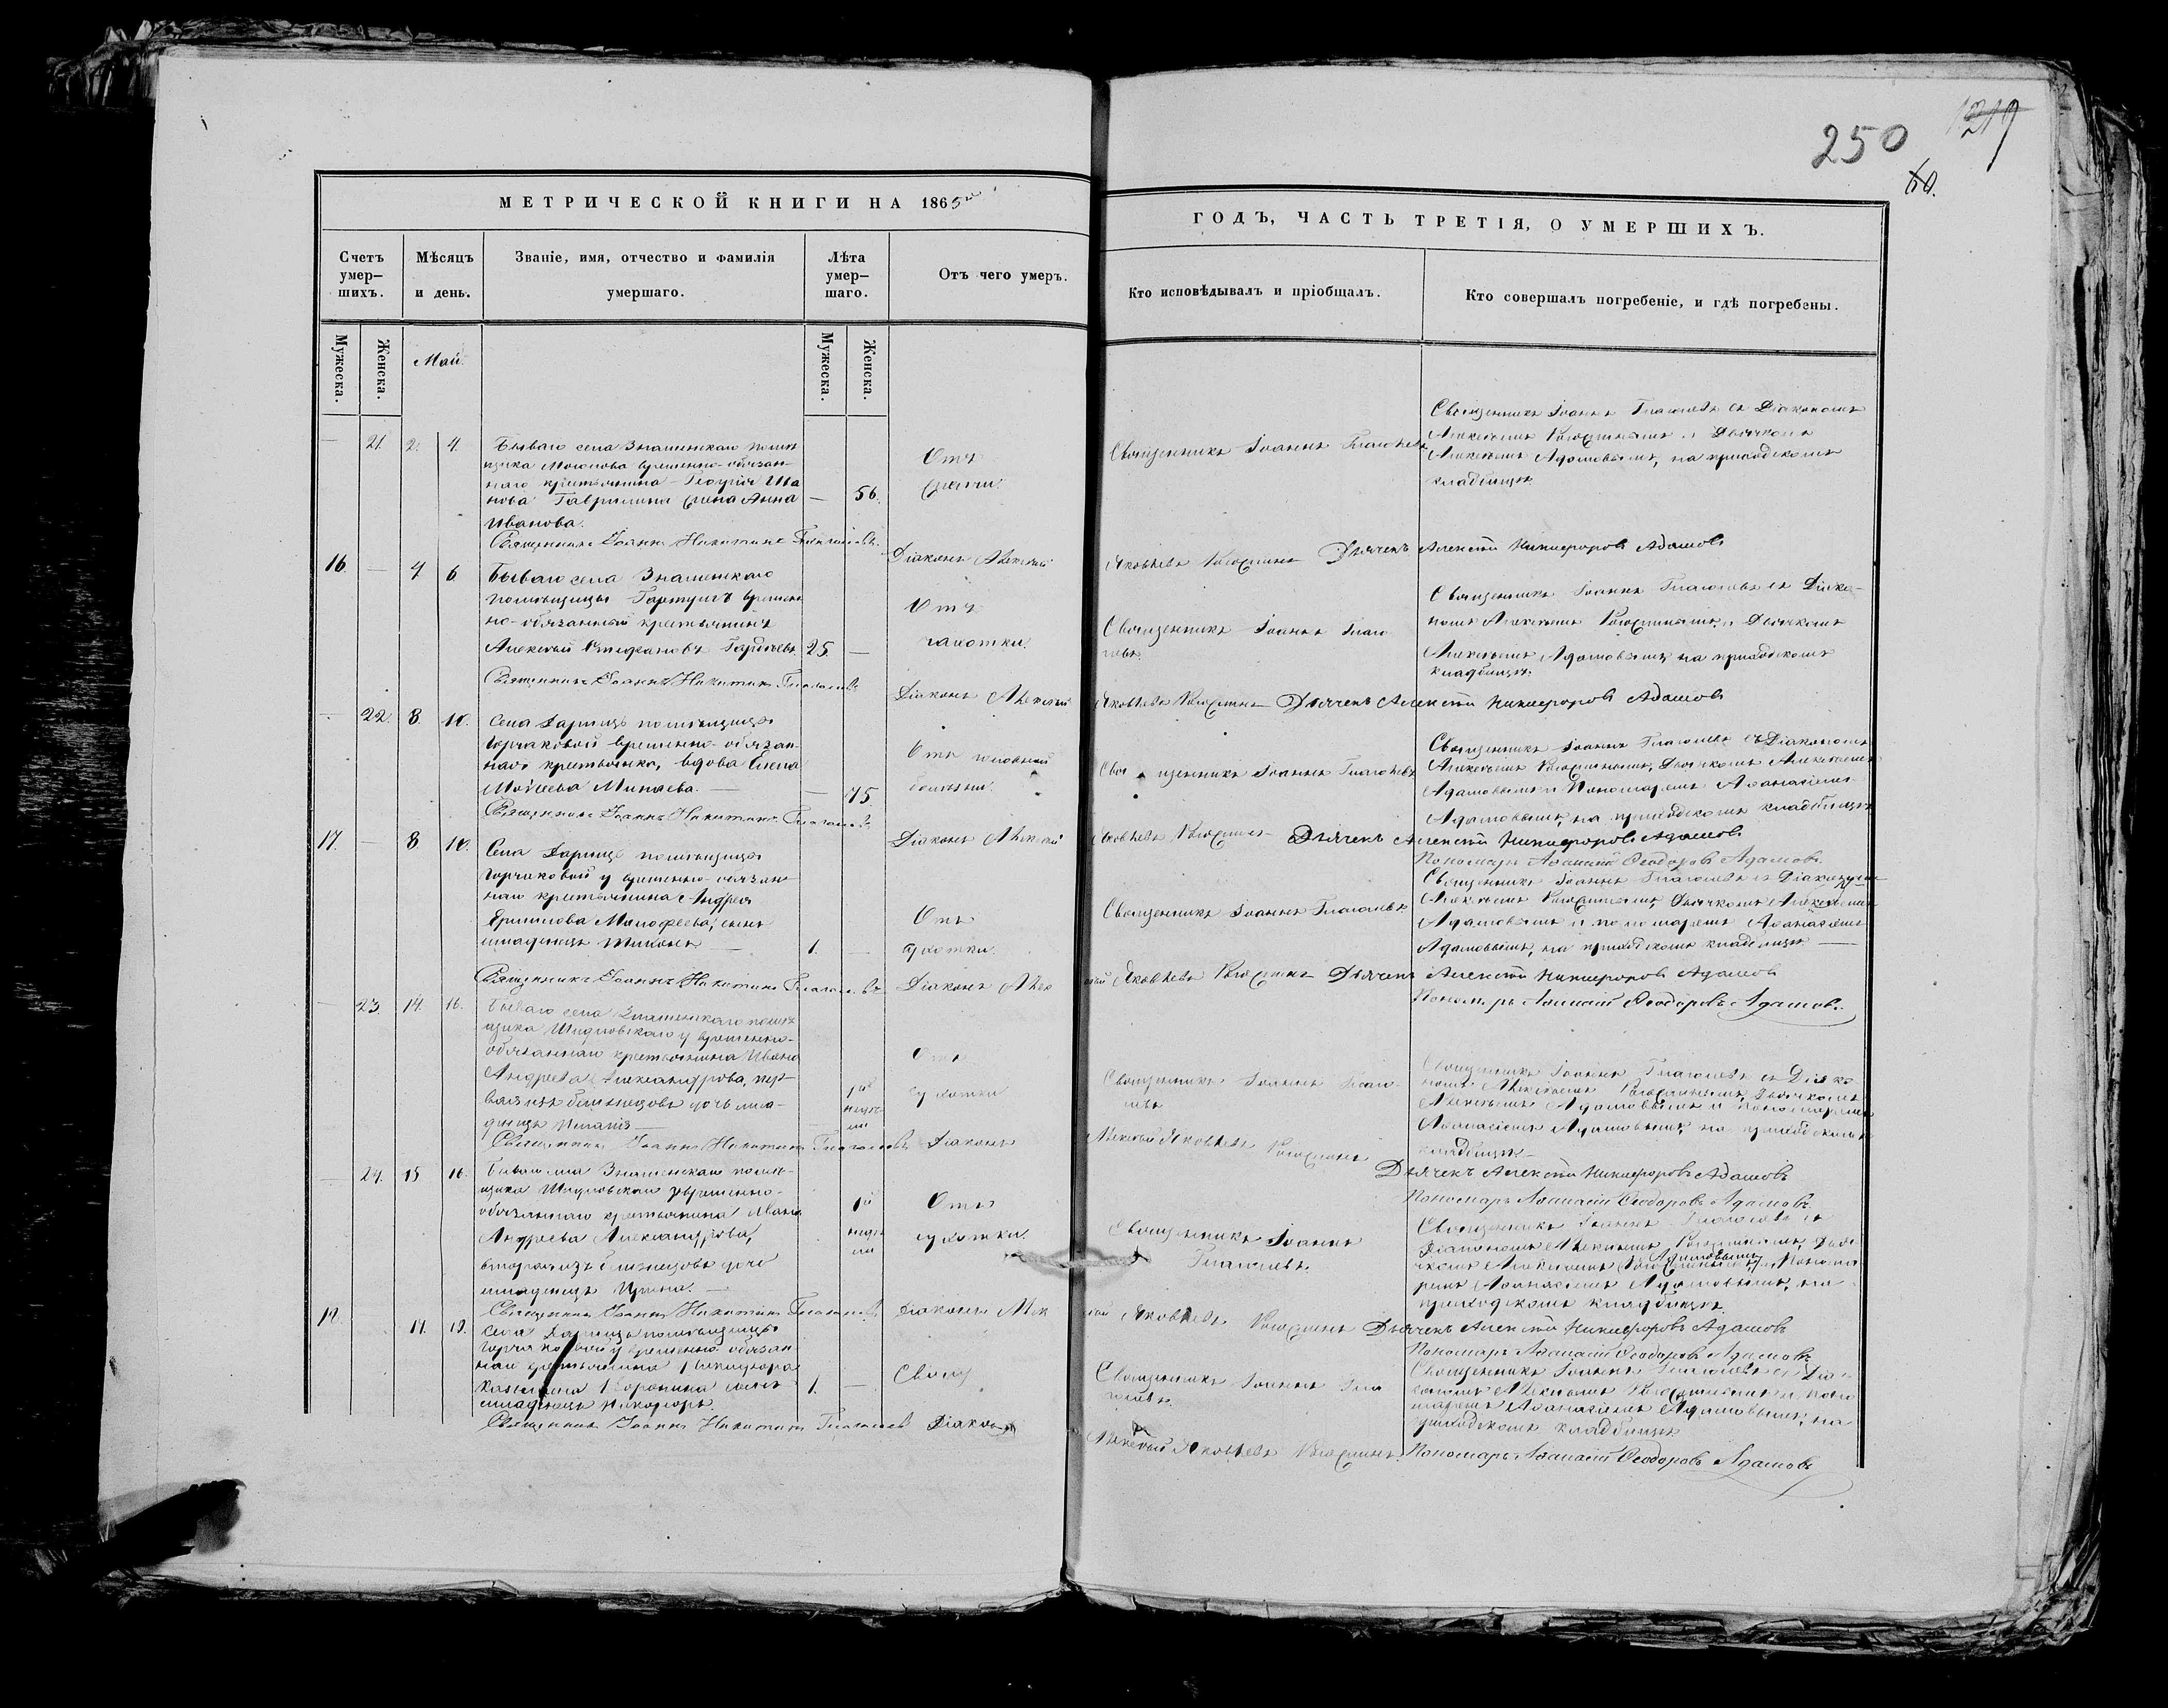 250
1219
60.
МЕТРИЧЕСКОЙ КНИГИ НА 1865
ГОДЪ, ЧАСТЬ ТРЕТІЯ, О УМЕРШИХЪ.
Счетъ умер-
шихъ.
Мѣсяцъ
и день.
Званіе, имя, отчество и фамилія
умершаго.
Лѣта
умер-
шаго.
Отъ чего умеръ.
Кто исповѣдывалъ и пріобщалъ.
Кто совершалъ погребеніе, и гдѣ погребены.
Мужеска.
Женска.
Май.
Мужеска.
Женска.
— 21. 2. 4.
Бываго села Знаменскаго помѣ
щика временно-обязан-
наго крестьянина Георгія Ива
нова Гаврилина жена Анна
Иванова.
— 56.
Отъ
Священникъ Іоаннъ Глаголевъ
Священникъ Іоаннъ Глаголевъ съ Діакономъ
Алексѣемъ и Дьячкомъ
Алексѣемъ Адамовымъ, на приходскомъ
кладбищѣ.
Священникъ Іоаннъ Никитинъ Глаголевъ. Діаконъ Алексѣй Яковлевъ Дьячекъ Алексѣй Никифоровъ Адамовъ
16. — 4 6
Бываго села Знаменскаго
помѣщицы Гартунгъ времен
но-обязанный крестьянинъ
Алексѣй Стефановъ
25. —
Отъ
чахотки.
Священникъ Іоаннъ Глаго
левъ.
Священникъ Іоаннъ Глаголевъ съ Діако-
номъ Алексѣемъ и Дьячкомъ
Алексѣемъ Адамовымъ на приходскомъ
кладбищѣ.
Священникъ Іоаннъ Никитинъ Глаголевъ Діаконъ Алексѣй Яковлевъ Дьячекъ Алексѣй Никифоровъ Адамовъ
— 22. 8. 10.
Села Дарищъ помѣщицы
Горчаковой временно-обязан-
ная крестьянка, вдова Елена
Моисеева Минаева. —
— 75
Отъ головной
болѣзни.
Священникъ Іоаннъ Глаголевъ
Священникъ Іоаннъ Глаголевъ съ Діакономъ
Алексѣемъ Дьячкомъ Алексѣемъ
Адамовымъ и Пономаремъ Аѳанасіемъ
Адамовымъ, на приходскомъ кладбищѣ
Священникъ Іоаннъ Никитинъ Глаголевъ Діаконъ Алексѣй Яковлевъ Дьячекъ Алексѣй Никифоровъ Адамовъ
Пономарь Аѳанасій Ѳеодоровъ Адамовъ.
17. — 8 10.
Села Дарищъ помѣщицы
Горчаковой у временно-обязан
наго крестьянина Андрея
Ермилова сынъ
младенецъ Тихонъ —
1. —
Отъ
сухотки.
Священникъ Іоаннъ Глаголевъ.
Священникъ Іоаннъ Глаголевъ съ Діакономъ
Алексѣемъ Дьячкомъ Алексѣемъ
Адамовымъ и пономаремъ Аѳанасіемъ
Адамовымъ, на приходскомъ кладбищѣ —
Священникъ Іоаннъ Никитинъ Глаголевъ Діаконъ Алексѣй Яковлевъ Дьячекъ Алексѣй Никифоровъ Адамовъ
Пономарь Аѳанасій Ѳеодоровъ Адамовъ.
— 23. 14. 16.
Бываго села Знаменскаго помѣ
щика Шидловскаго у временно-
обязаннаго крестьянина Ивана
Андреева Александрова, пер-
вая изъ близнецовъ дочь мла-
денецъ
Отъ
сухотки
Священникъ Іоаннъ Глаго-
левъ
Священникъ Іоаннъ Глаголевъ съ Діако
номъ Алексѣемъ Дьячкомъ
Алексѣемъ Адамовымъ и пономаремъ
Аѳанасіемъ Адамовымъ, на приходскомъ
кладбищѣ.
Священникъ Іоаннъ Никитинъ Глаголевъ Діаконъ Алексѣй Яковлевъ
Дьячекъ Алексѣй Никифоровъ Адамовъ
Пономарь Аѳанасій Ѳеодоровъ Адамовъ.
— 24. 15 16.
Бываго села Знаменскаго помѣ-
щика Шидловскаго у временно-
обязаннаго крестьянина Ивана
Андреева Александрова,
вторая изъ близнецовъ дочь
младенецъ Ирина. —
Отъ
сухотки.
Священникъ Іоаннъ
Глаголевъ.
Священникъ Іоаннъ Глаголевъ съ
Діакономъ Алексѣемъ Дья
чкомъ Алексѣемъ Адамовымъ и Понома
ремъ Аѳанасіемъ Адамовымъ, на
приходскомъ кладбищѣ.
Священникъ Іоаннъ Никитинъ Глаголевъ Діаконъ Алексѣй Яковлевъ Дьячекъ Алексѣй Никифоровъ Адамовъ
Пономарь Аѳанасій Ѳеодоровъ Адамовъ
18.
Села Дарищъ помѣщицы
Горчаковой у временно обязан-
наго крестьянина
сынъ
младенецъ Никифоръ.
1. —
Священникъ Іоаннъ Гла
голевъ.
Священникъ Іоаннъ Глаголевъ съ Діа
кономъ Алексѣемъ и Поно
маремъ Аѳанасіемъ Адамовымъ, на
приходскомъ кладбищѣ
Священникъ Іоаннъ Никитинъ Глаголевъ Діаконъ
Алексѣй Яковлевъ Пономарь Аѳанасій Ѳеодоровъ Адамовъ